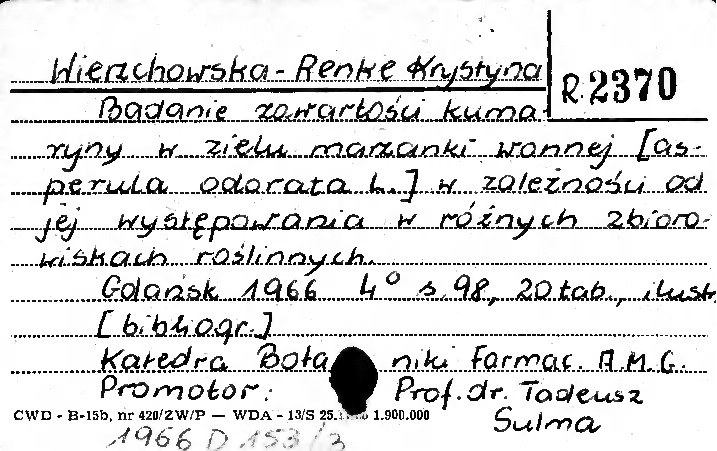 Wierzchowska-Renke Krystyna
R.2370
Badanie zawartości kuma-
ryny w zielu marzanki wonnej [as-
perula odorata L.] w zależności od
jej występowania w różnych zbioro-
wiskach roślinnych.
Gdańsk 1966 4° s.98, 20 tab., ilustr.
[bibliogr.]
Katedra Bota niki Farmac. A.M.G.
Promotor: Prof. dr. Tadeusz
Sulma
CWD - B-15b, nr 420/ZW/P — WDA - 13/S 25. 1.900.000
1966 D 153/3